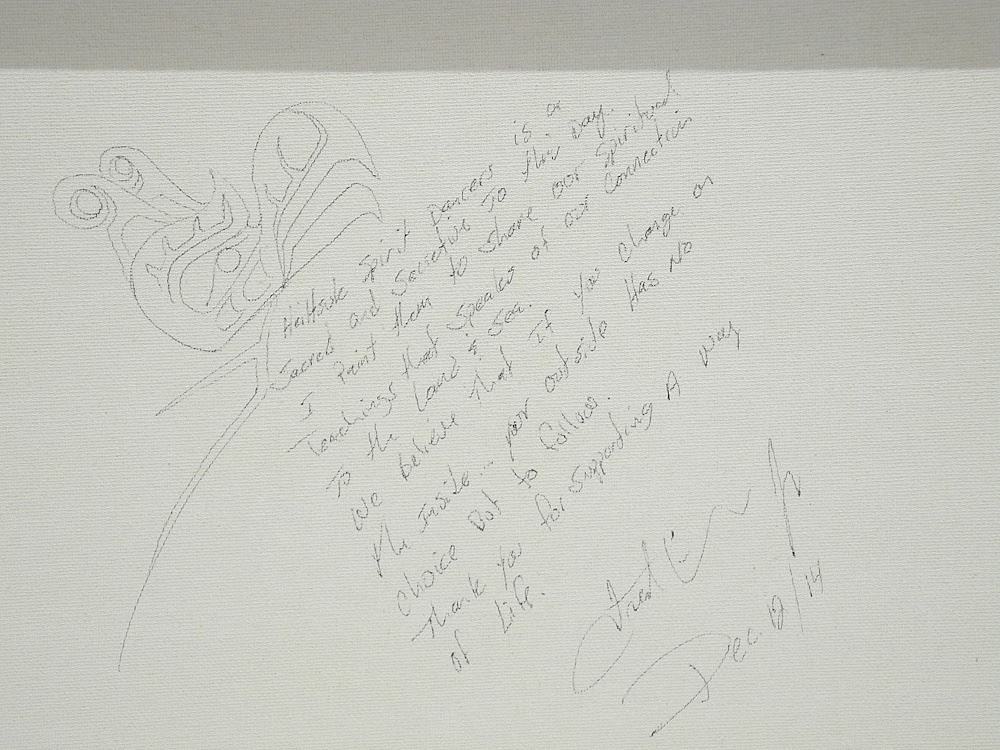 Heiltsuk Spirit Dancers is a
Sacred and Secretive To this Day.
I Paint them to Share our Spiritual
Teachings that speaks of our Connection
To the Land & Sea.
We Believe That If you Change on
the Inside... your outside Has No
Choice But to follow.
Thank You for Supporting A way
of Life.
Dec. 12/14